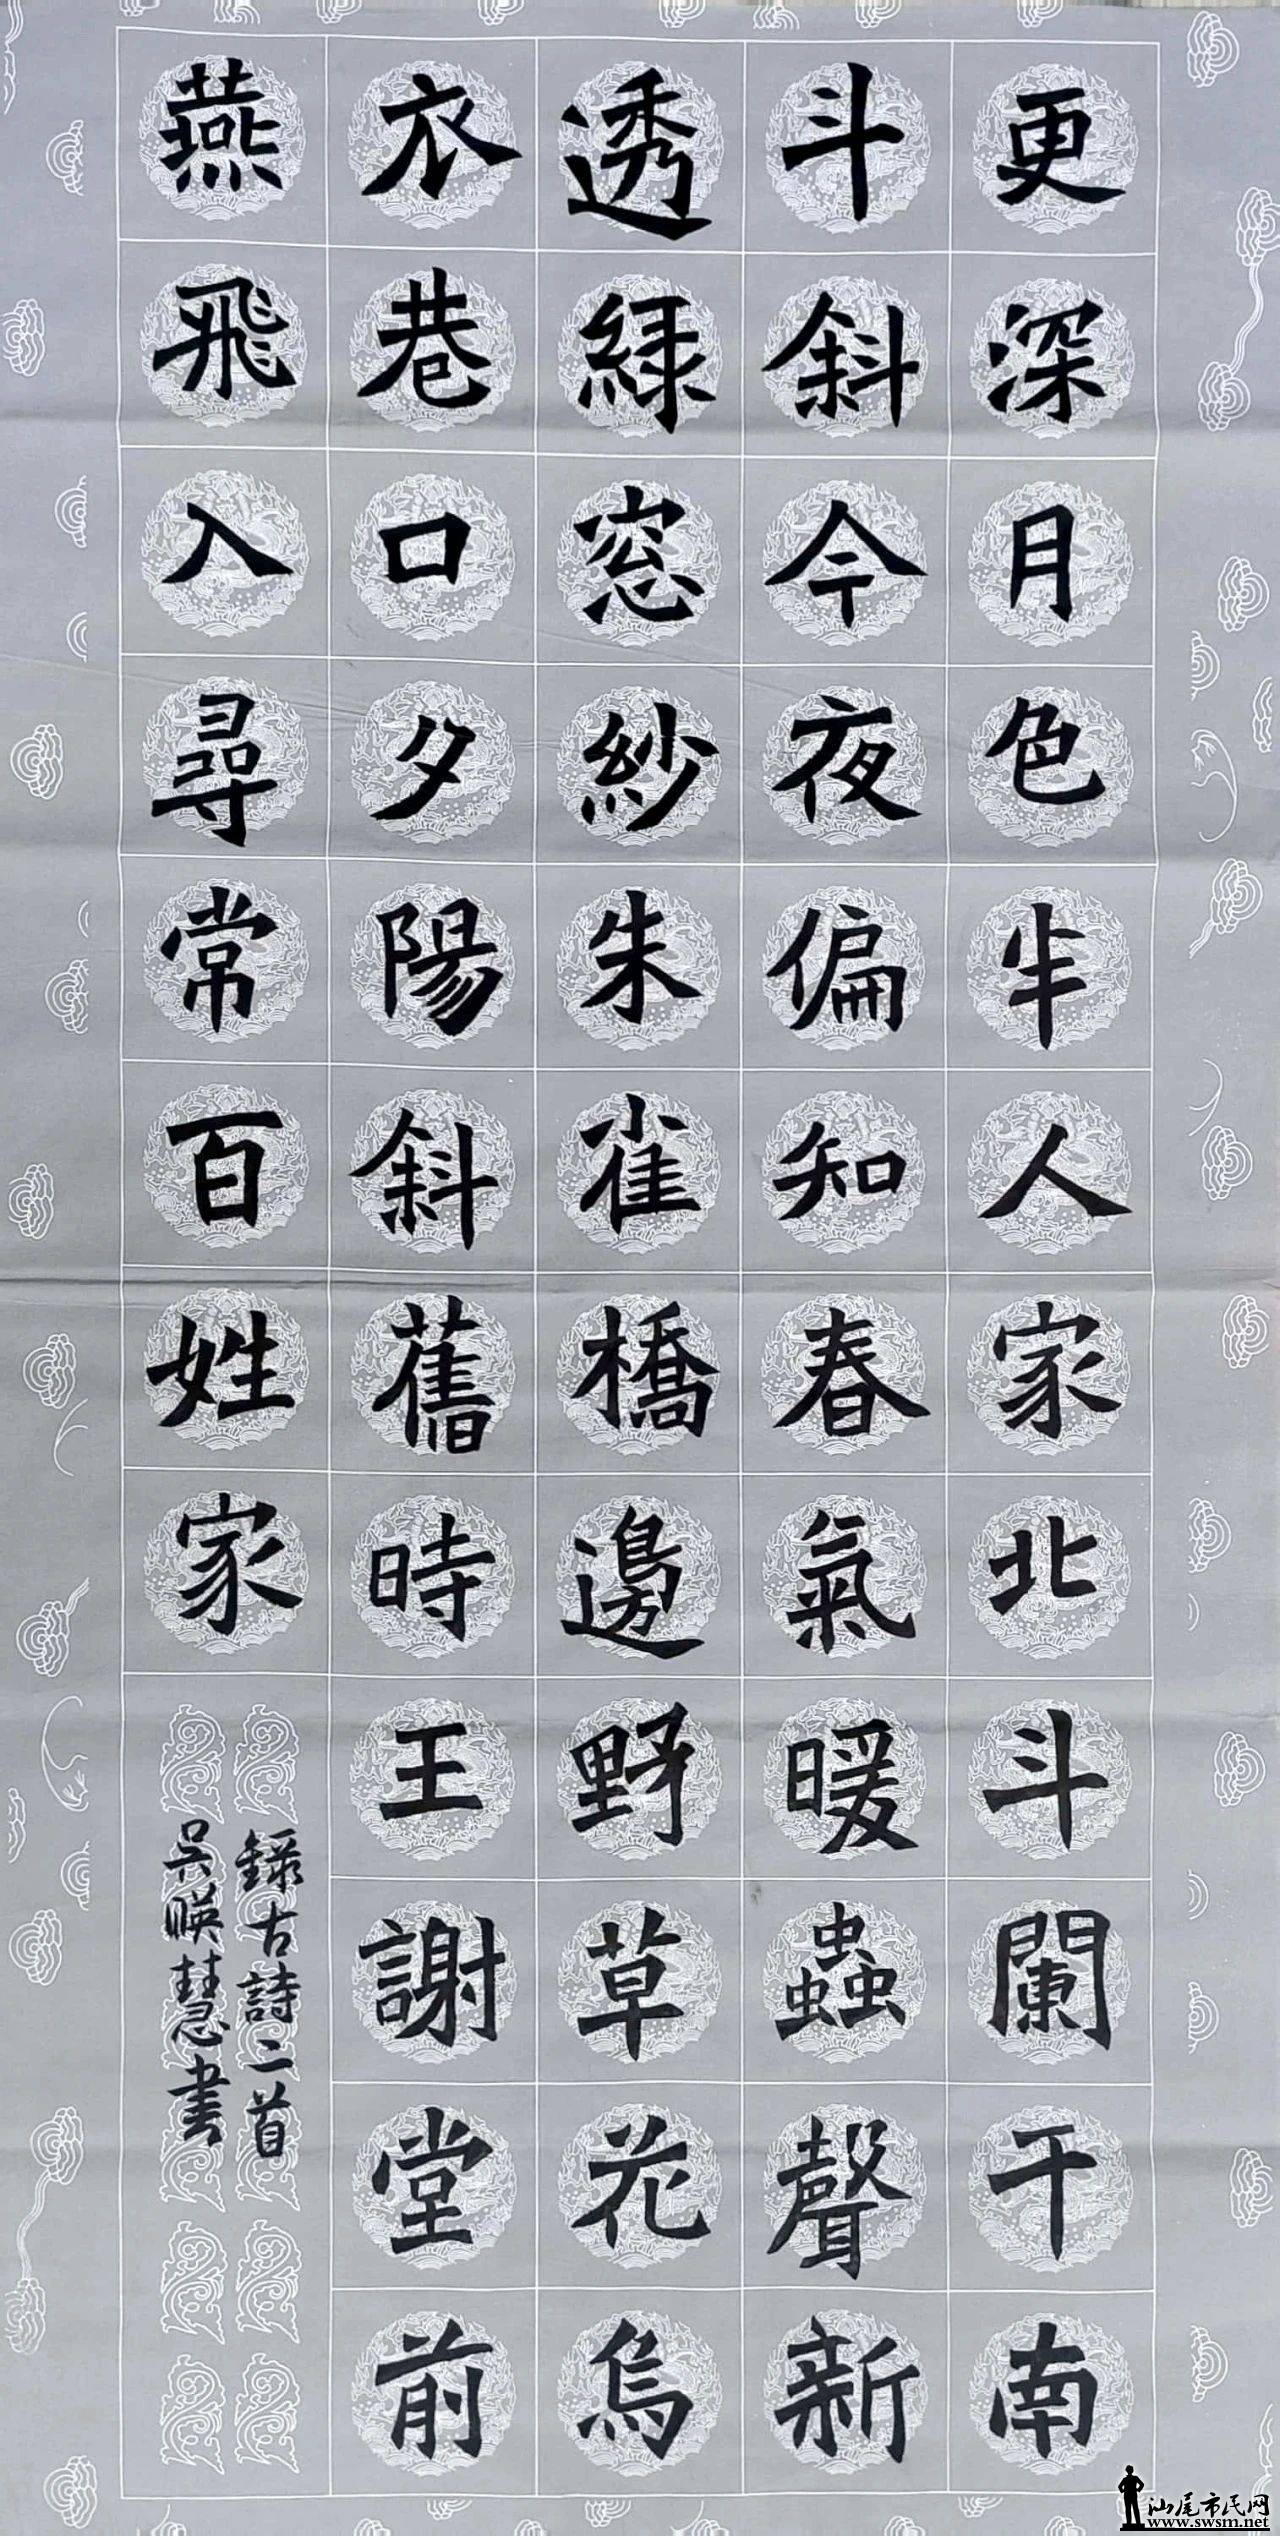 更深月色半人家北斗闌干南
斗斜今夜偏知春氣暖蟲聲新
透緑窓紗朱雀橋邊野草花烏
衣巷口夕陽斜舊時王謝堂前
燕飛入尋常百姓家
錄古詩二首
吴暎慧書
汕尾市民网
www.swsm.net